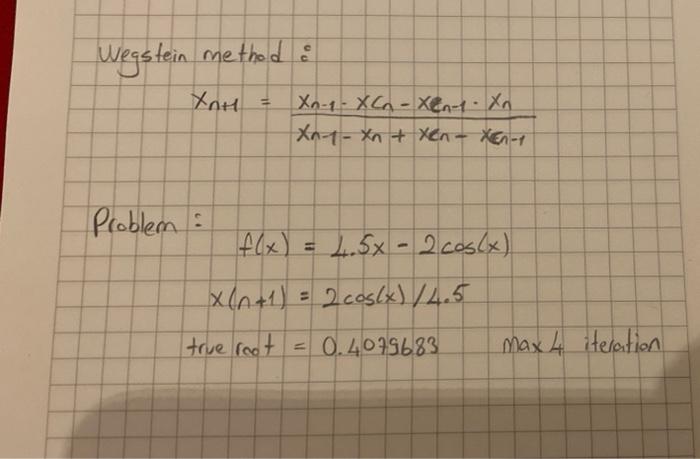 Wegstein method :
Xn+1 = Xn-1 · XCn - XCn-1 · Xn
Xn-1 - Xn + XCn - XCn-1
Problem :
f(x) = 4.5x - 2cos(x)
x(n+1) = 2cos(x) / 4.5
true root = 0.4079683 max 4 iteration